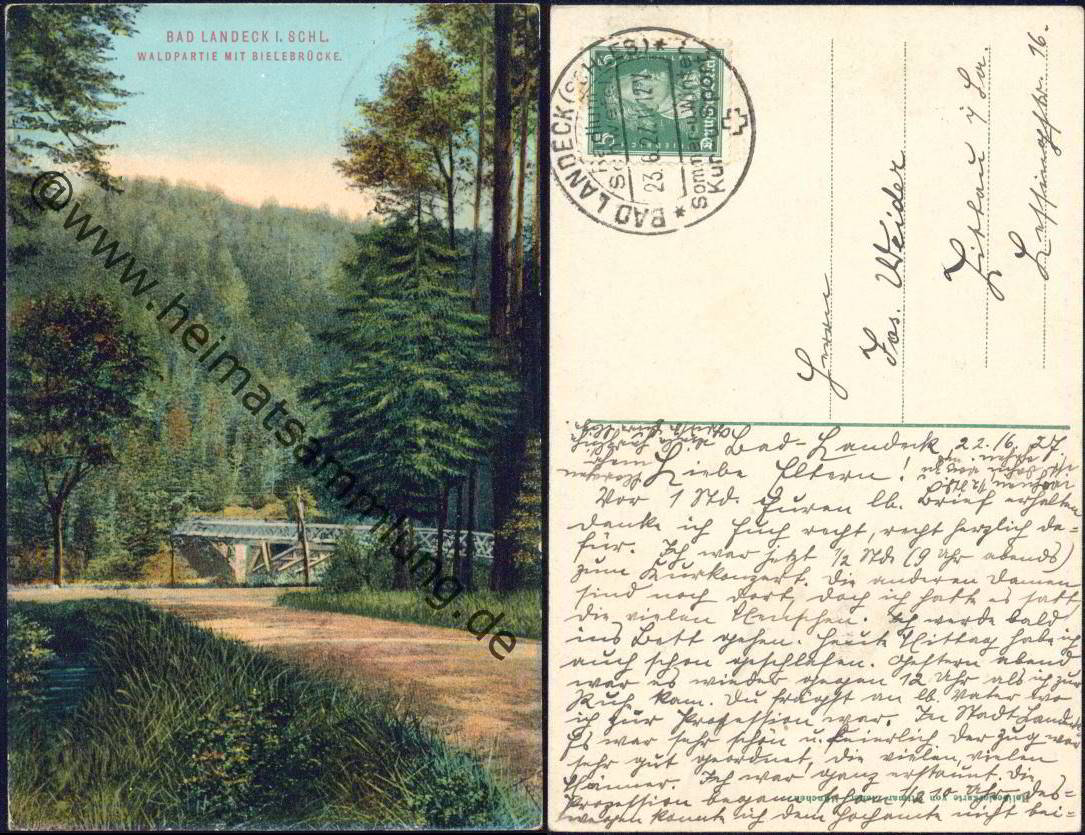 BAD LANDECK I. SCHL.
WALDPARTIE MIT BIELEBRÜCKE.
@www.heimatsammlung.de
BAD LANDECK (SCHLES)
23.6.27.
BAD LANDECK
Sommer- u. Winter-
Kur
Herrn
Jos. Weider
Zittau i/Sa.
Lessingstr. 16.
Bad-Landeck, 22./6. 27.
Liebe Eltern!
Vor 1 Std. Euren lb. Brief erhalten,
danke ich Euch recht, recht herzlich da-
für. Ich war jetzt 1/2 Std. (9 Uhr abends)
zum Kurkonzert. Die anderen Damen
sind noch dort, doch ich hatte es satt,
die vielen Menschen. Ich werde bald
ins Bett gehen. Heute Mittag habe ich
auch schon geschlafen. Gestern abend
war es wieder gegen 12 Uhr als ich zur
Ruh kam. Du frägst an lb. Vater wo
ich zur Profession war. In Stadt Landeck
Es war sehr schön u. feierlich der Zug war
sehr gut geordnet, die vielen, vielen
Männer. Ich war ganz erstaunt. Die
Prozession begann schon 1/2 10 Uhr, des-
wegen konnte ich dem Hochamte nicht bei-